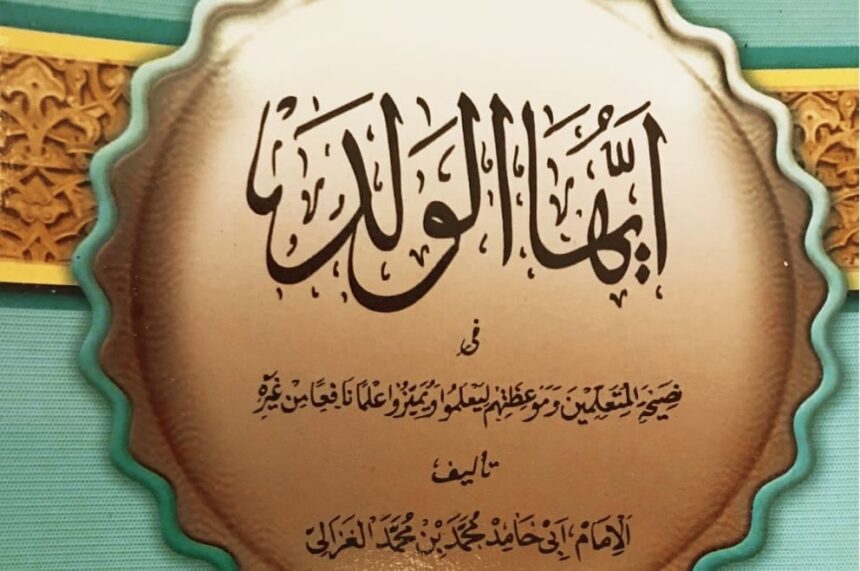 ايُّهَا الْوَلَدُ
فى
نصيحة المتعلمين وموعظتهم ليعلموا ويميزوا علمًا نافعًا من غيره
تأليف
الإمام ابى حامد محمد بن محمد الغزالى